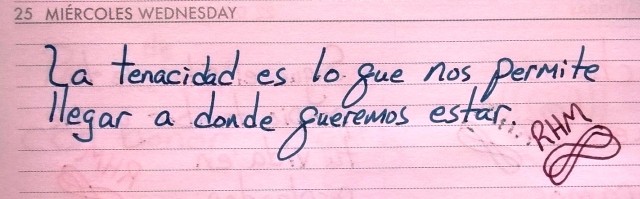 25 MIÉRCOLES WEDNESDAY
La tenacidad es lo que nos permite
llegar a donde queremos estar.
RHM